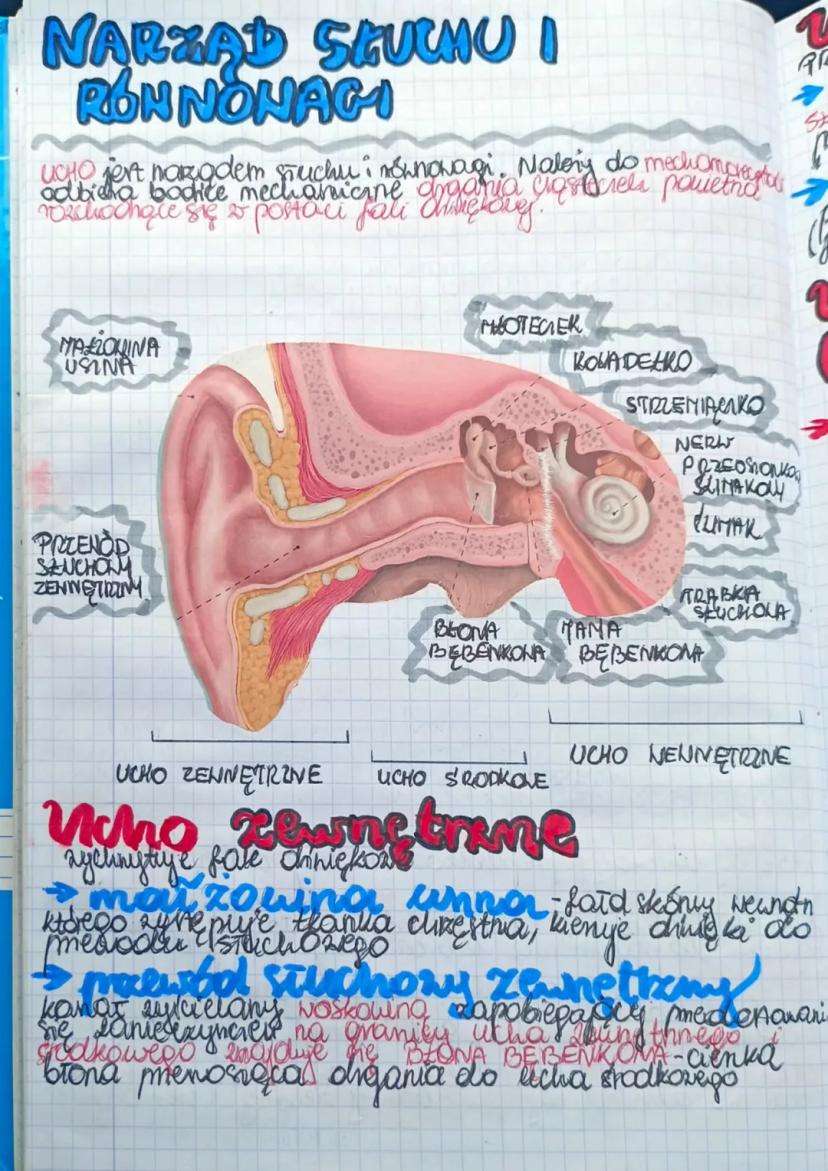 NARZĄD SŁUCHU I
RÓWNOWAGI
UCHO jest narządem słuchu i równowagi. Należy do
odbiera bodźce mechaniczne drgania cząsteczek powietrza
rozchodzące się w postaci fali dźwiękowej.
MAŁŻOWINA
USZNA
MŁOTECZEK
KOWADEŁKO
STRZEMIĄCZKO
NERW
PRZEDSIONKOWO
ŚLIMAKOWY
ŚLIMAK
PRZEWÓD
SŁUCHOWY
ZEWNĘTRZNY
TRĄBKA
SŁUCHOWA
BŁONA
BĘBENKOWA
JAMA
BĘBENKOWA
UCHO ZEWNĘTRZNE
UCHO ŚRODKOWE
UCHO WEWNĘTRZNE
Ucho zewnętrzne
wychwytuje fale dźwiękowe
→ małżowina uszna - fałd skórny wewnątrz
którego występuje tkanka chrzęstna, kieruje dźwięki do
przewodu słuchowego
→ przewód słuchowy zewnętrzny
kanał wyścielany woskowiną zapobiegającej przedostawaniu
się zanieczyszczeń na granicy ucha zewnętrznego i
środkowego znajduje się BŁONA BĘBENKOWA - cienka
błona przenosząca drgania do ucha środkowego